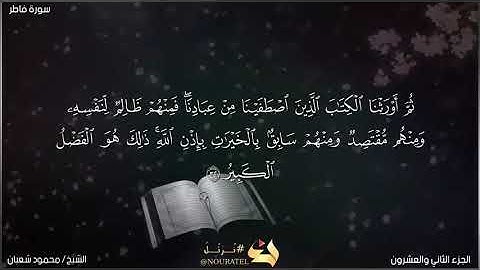 سورة فاطر
ثُمَّ أَوْرَثْنَا ٱلْكِتَـٰبَ ٱلَّذِينَ ٱصْطَفَيْنَا مِنْ عِبَادِنَاۖ فَمِنْهُمْ ظَالِمٌ لِّنَفْسِهِۦ
وَمِنْهُم مُّقْتَصِدٌ وَمِنْهُمْ سَابِقٌۢ بِٱلْخَيْرَٰتِ بِإِذْنِ ٱللَّهِۚ ذَٰلِكَ هُوَ ٱلْفَضْلُ
ٱلْكَبِيرُ ٣٢
#نُرَتِّلُ
@NOURATEL
الجزء الثاني والعشرون
الشيخ/ محمود شعبان